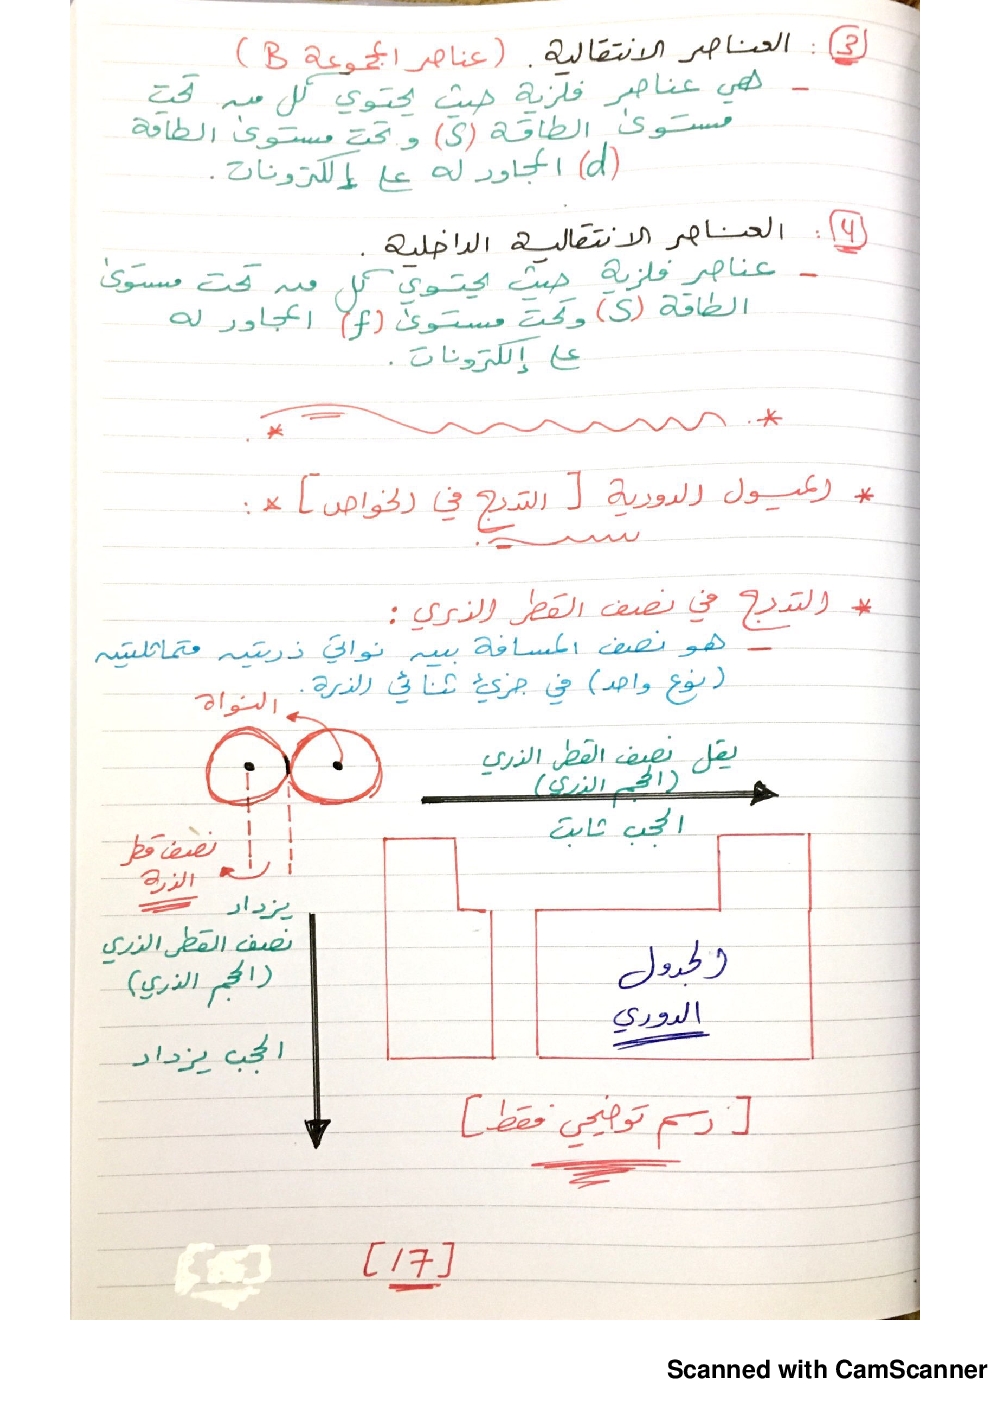 3: العناصر الانتقالية. (عناصر المجموعة B)
- هي عناصر فلزية حيث يحتوي كل منه تحت
مستوى الطاقة (S) و تحت مستوى الطاقة
(d) المجاور له على إلكترونات.
4: العناصر الانتقالية الداخلية.
- عناصر فلزية حيث يحتوي كل منه تحت مستوى
الطاقة (S) وتحت مستوى (f) المجاور له
على إلكترونات.
* الميول الدورية [التدرج في الخواص] * :
* التدرج في نصف القطر الذري :
- هو نصف المسافة بين نواتي ذرتين متماثلتين
(نوع واحد) في جزيء ثنائي الذرة.
النواة
يقل نصف القطر الذري
(الحجم الذري)
الحجب ثابت
نصف قطر
الذرة
يزداد
نصف القطر الذري
(الحجم الذري)
الحجب يزداد
الجدول
الدوري
[رسم توضيحي فقط]
[17]
Scanned with CamScanner